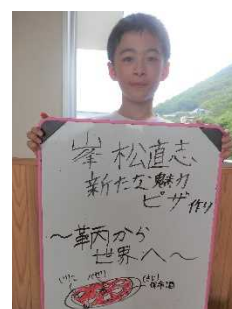 峯松直志
新たな魅力
ピザ作り
〜鞆から
世界へ〜